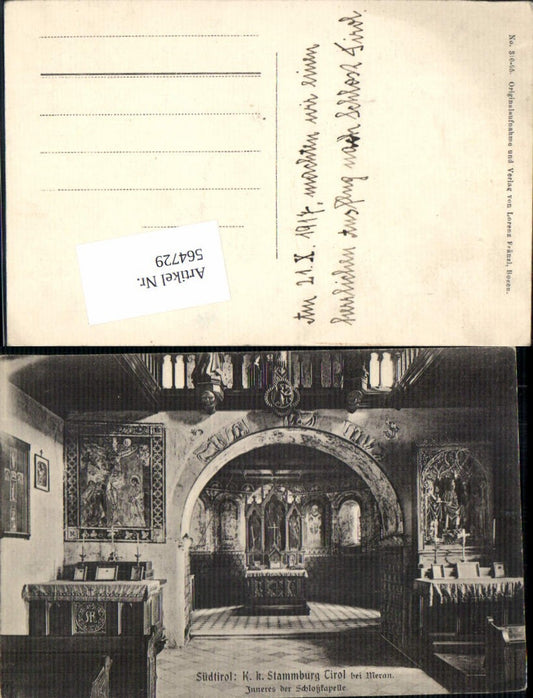 No. 310-05. Originalaufnahme und Verlag von Lorenz Fränzl, Bozen.
Am 21.X.1917, machten wir einen
herrlichen Ausflug nach Schloss Tirol
Artikel Nr.
564729
Südtirol: K. k. Stammburg Tirol bei Meran.
Inneres der Schloßkapelle